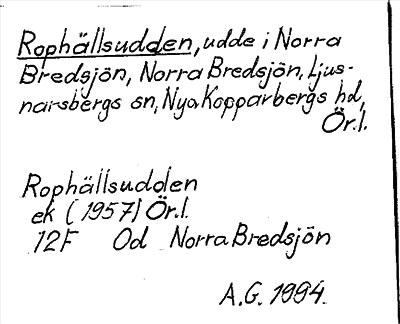 Rophällsudden, udde i Norra
Bredsjön, Norra Bredsjön, Ljus-
narsbergs sn, Nya Kopparbergs hd,
Ör.l.
Rophällsudden
ek (1957) Ör.l.
12F Od Norra Bredsjön
A.G. 1994.